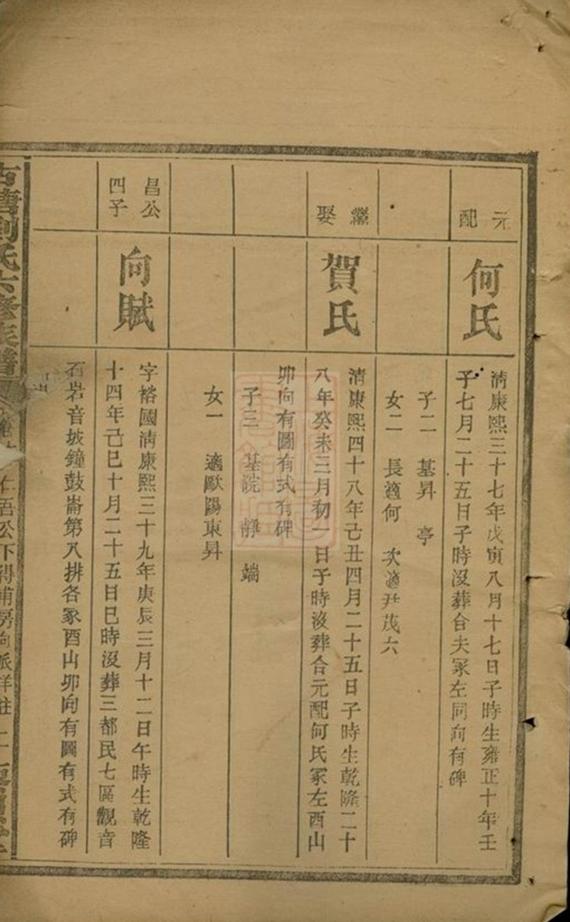 元配
何氏
清康熙三十七年戊寅八月十七日子時生雍正十年壬
子七月二十五日子時沒葬合夫冢左同向有碑
子二 基昇 亭
女二 長適何 次適尹茂六
繼娶
賀氏
清康熙四十八年己丑四月二十五日子時生乾隆二十
八年癸未三月初一日子時沒葬合元配何氏冢左酉山
卯向有圖有式有碑
子三 基院 靜 端
女一 適歐陽東昇
昌公四子
向賦
字裕國清康熙三十九年庚辰三月十二日午時生乾隆
十四年己巳十月二十五日巳時沒葬三都民七區觀音
石岩音坡鐘鼓崙第八排各冢酉山卯向有圖有式有碑
劉氏六修族譜